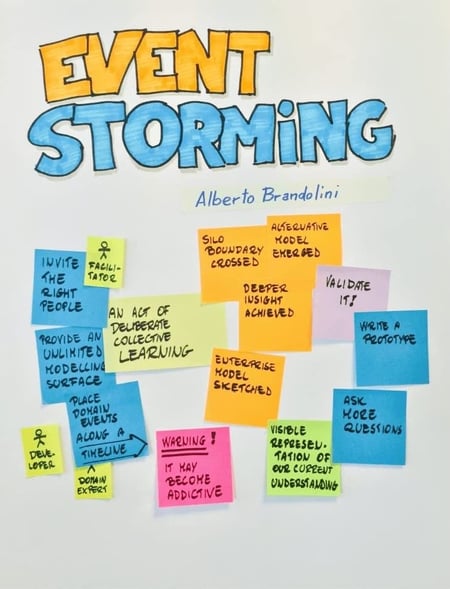 EVENT
STORMiNG
Alberto Brandolini
INVITE
THE
RIGHT
PEOPLE
FACILI-
TATOR
PROVIDE AN
UNLIMITED
MODELLING
SURFACE
AN ACT OF
DELIBERATE
COLLECTIVE
LEARNING
PLACE
DOMAIN
EVENTS
ALONG A
TIMELINE
DEVE-
LOPER
DOMAIN
EXPERT
SILO
BOUNDARY
CROSSED
ALTERNATIVE
MODEL
EMERGED
DEEPER
INSIGHT
ACHIEVED
ENTERPRISE
MODEL
SKETCHED
WARNING!
IT MAY
BECOME
ADDICTIVE
VISIBLE
REPRESEN-
TATION OF
OUR CURRENT
UNDERSTANDING
VALIDATE
IT!
WRITE A
PROTOTYPE
ASK
MORE
QUESTIONS